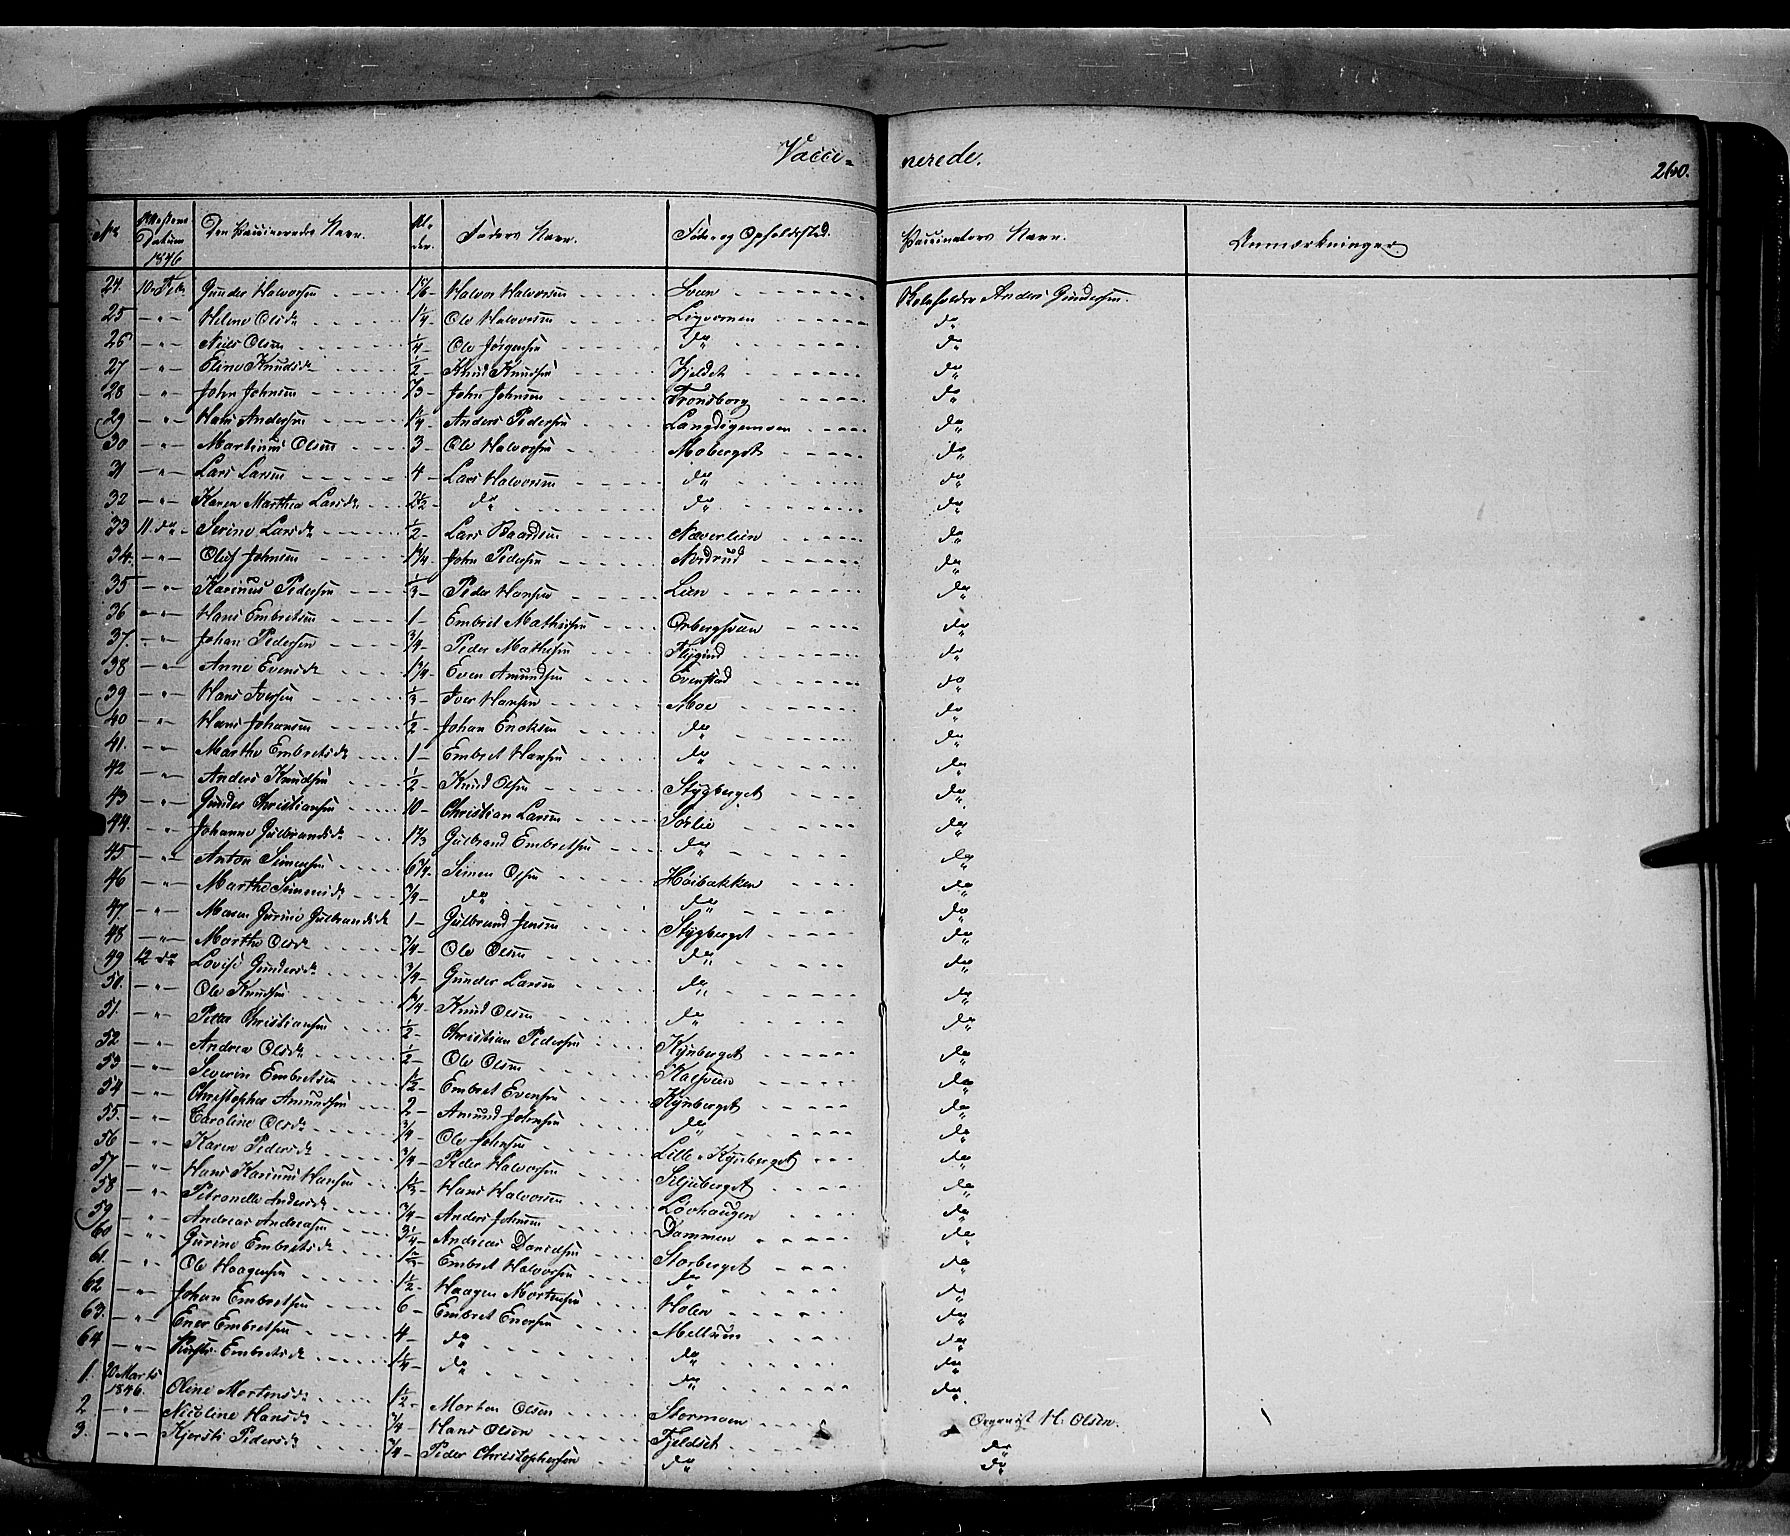 Vacci- nerede. 260.
No Attestens Datum 1846 Den Vaccineredes Navn. Alder. Faders Navn. Føde- og Opholdssted. Vaccinators Navn. Anmærkninger
24. 10 Feb Gunder Halvorsen Halvor Halvorsen Sveen Anders Gundersen.
25 - " - Helene Olsdr 1 1/4 Ole Halvorsen do
26 - " - Niels Olsen 1/4 Ole Jørgensen do do
27 - " - Eline Knudsdr 1/2 Knud Knudsen Fjeldet do
28 - " - John Johnsen John Johnsen Tronsborg do
29 - " - Hans Andersen 1 1/4 Anders Pedersen do
30 - " - Martinus Olsen 3 Ole Halvorsen Moberget do
31 - " - Lars Larsen 4 Lars Halvorsen do do
32 - " - Karen Marthea Larsdr 2 1/2 do do do
33 11 do Serine Larsdr 1/2 Lars Baardsen Næverlien do
34. - " - Oluf Johnsen 1 3/4 John Pedersen Nordrud do
35 - " - Karinus Pedersen 1/3 Peder Hansen Lien do
36 - " - Hans Embretsen 1 Embret Mathisen do
37. - " - Johan Pedersen 3/4 Peder Mathisen Flygind do
38 - " - Anne Evensdr 1 3/4 Even Amundsen Evenstad do
39 - " - Hans Iversen 1/3 Iver Hansen Moe do
40 - " - Hans Johansen 1/2 Johan Enoksen do do
41. - " - Marthe Embretsdr 1 Embret Hansen do do
42 - " - Anders Knudsen 1/2 Knud Olsen Stygberget do
43 - " - Gunder Christiansen 10 Christian Larsen Sørlie do
44. - " - Johanne Gulbrandsdr 1 2/3 Gulbrand Embretsen do do
45 - " - Anton Simensen 6 3/4 Simen Olsen Høibakken do
46 - " - Marthe Simensdr 3/4 do do do
47. - " - Maren Gurine Gulbrandsdr 1 Gulbrand Jensen Stygberget do
48 - " - Marthe Olsdr 3/4 Ole Olsen do do
49 12 do Lovise Gundersdr 3/4 Gunder Larsen do do
50. - " - Ole Knudsen 1 3/4 Knud Olsen do do
51. - " - Petter Christiansen 1/2 Christian Pedersen Kynberget do
52 - " - Andrea Olsdr 1/2 Ole Olsen do
53 - " - Severin Embretsen 1 1/2 Embret Evensen Kynberget do
54 - " - Christopher Amundsen 2 Amund Johnsen do do
55. - " - Caroline Olsdr 3/4 Ole Johnsen Lille Kynberget do
56 - " - Karen Pedersdr 3/4 Peder Halvorsen do
57 - " - Hans Karinus Hansen Hans Halvorsen Løvhaugen do
58 - " - Petronelle Andersdr 3/4 Anders Johnsen Dammen do
59 - " - Andreas Andreasen 3 1/4 Andreas Danielsen Storberget do
60 - " - Gurine Embretsdr Embret Halvorsen do do
61. - " - Ole Haagensen 1 1/2 Haagen Mortensen Holen do
62 - " - Johan Embretsen 6 Embret Enersen do
63. - " - Ener Embretsen 4 do do do
64 - " - Embretsdr 1 1/4 do do do
1. 20 Marts 1846. Oline Mortensdr 1 1/2 Morten Olsen Stormoen Organist H. Olsen.
2 - " - Nicoline Hansdr 3/4 Hans Olsen Fjeldset do
3. - " - Kjersti Pedersdr 3/4 Peder Christophersen do do